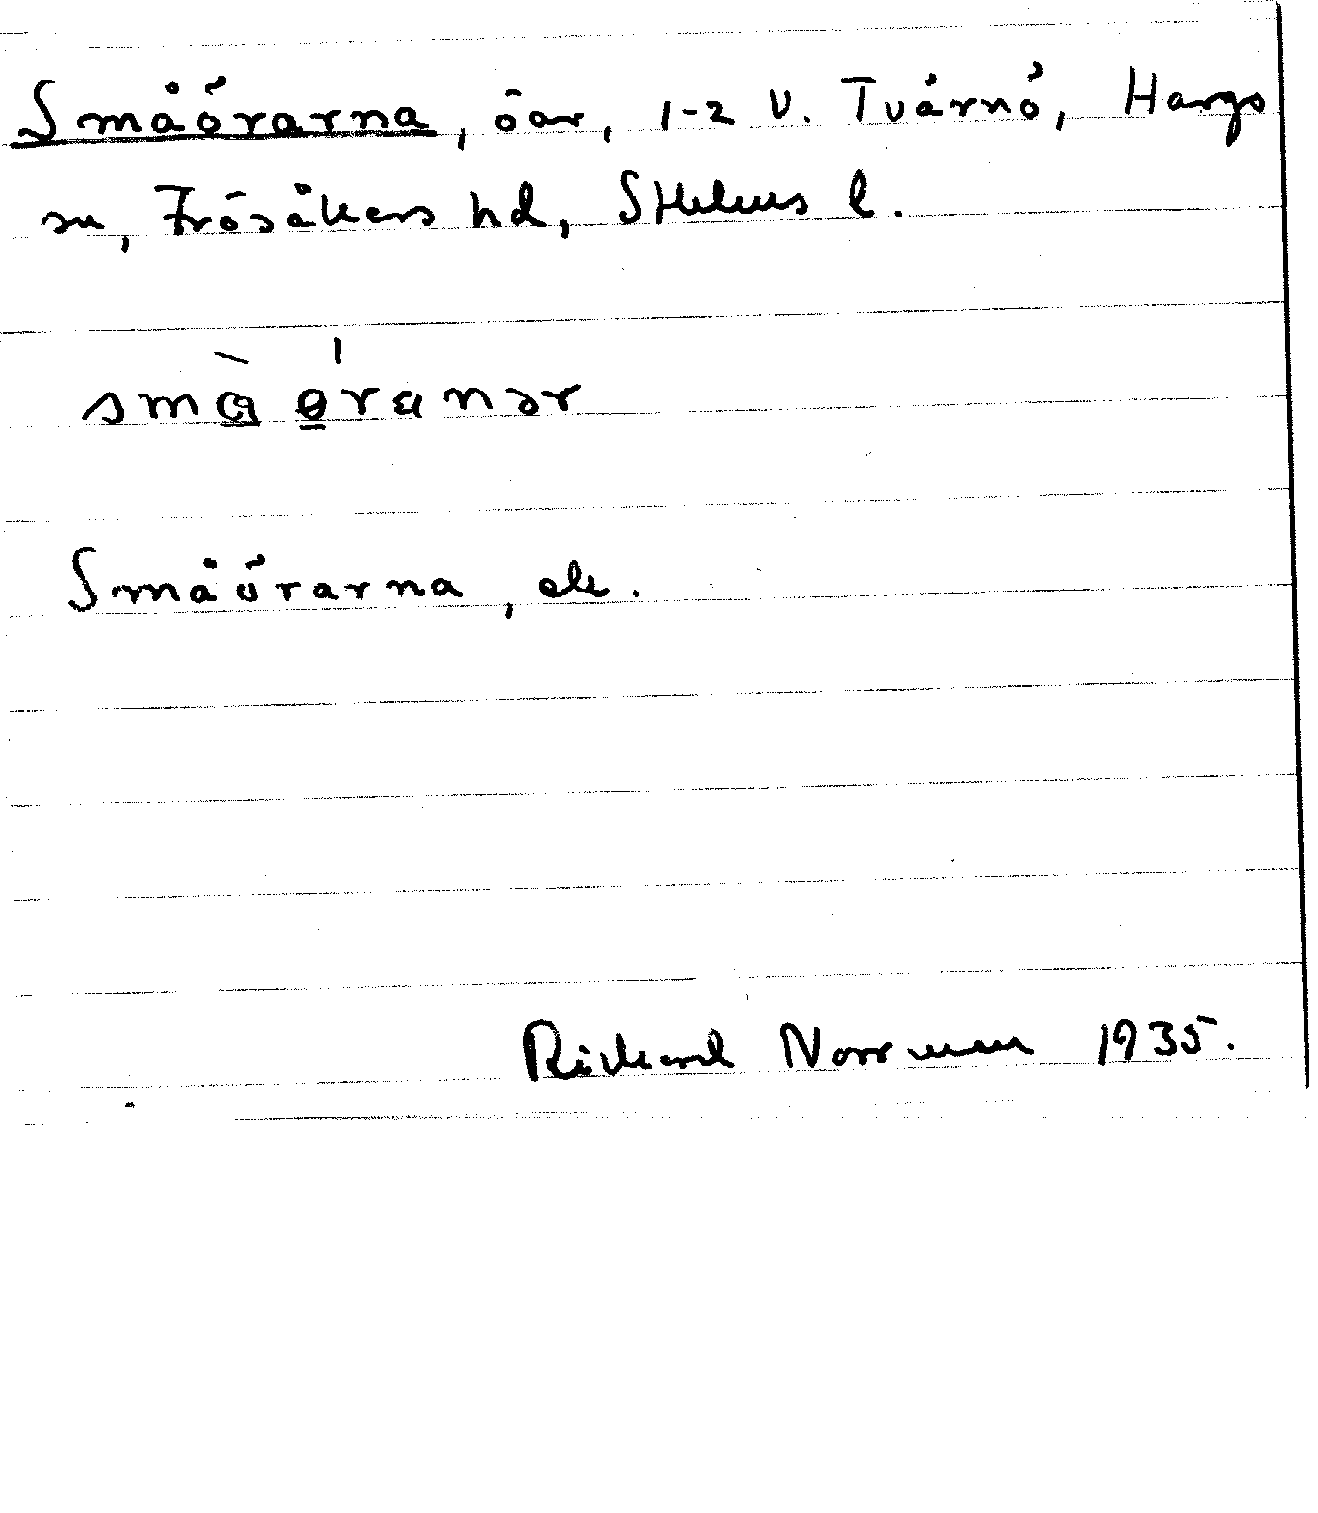 Småörarna, öar, 1-2 V. Tvärnö, Hargs
sn, Frösåkers hd, Sthlms l.
småörɑnər
Småörarna, ek.
Rickard Norrman 1935.